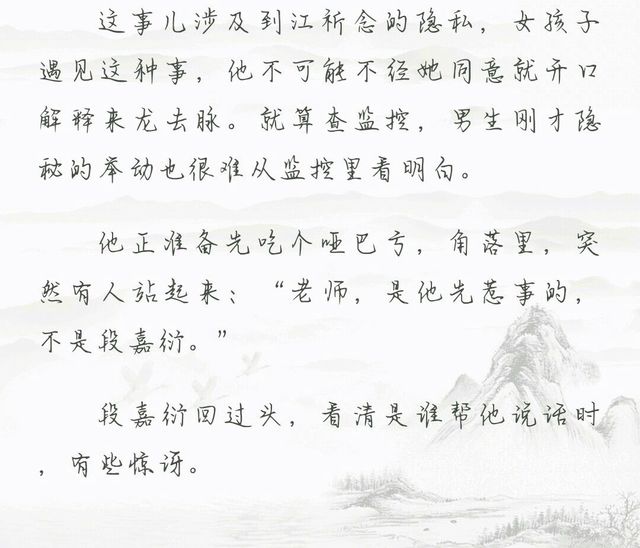 这事儿涉及到江祈念的隐私，女孩子
遇见这种事，他不可能不经她同意就开口
解释来龙去脉。就算查监控，男生刚才隐
秘的举动也很难从监控里看明白。
他正准备先吃个哑巴亏，角落里，突
然有人站起来：“老师，是他先惹事的，
不是段嘉衍。”
段嘉衍回过头，看清是谁帮他说话时
，有些惊讶。